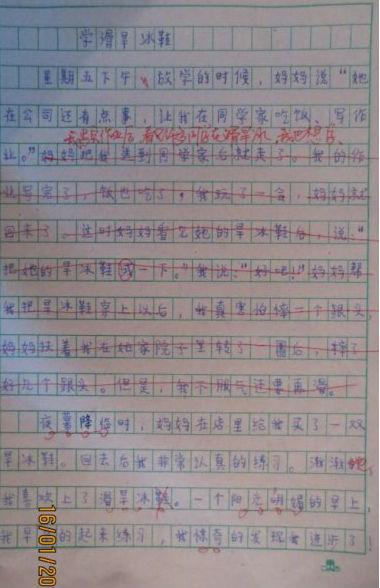 学滑旱冰鞋
星期五下午，放学的时候，妈妈说“她
在公司还有点事，让我在同学家吃饭、写作
业。”妈妈把我送到同学家后就走了。我的作
业写完了，饭也吃了，我玩了一会，妈妈就
回来了。这时妈妈看它她的旱冰鞋后，说：“
把她的旱冰鞋试一下。”我说：“好吧！”妈妈帮
我把旱冰鞋穿上以后，我真害怕摔一个跟头，
妈妈扶着我在她家院子里转了一圈后，摔了
好几个跟头。但是，我不服气还要再滑。
夜幕降临时，妈妈在店里给我买了一双
旱冰鞋。回去后我非常认真的练习。渐渐地，
我喜欢上了滑旱冰鞋。一个阳光明媚的早上，
我早早的起来练习，我惊奇的发现我进步了！
16/01/20